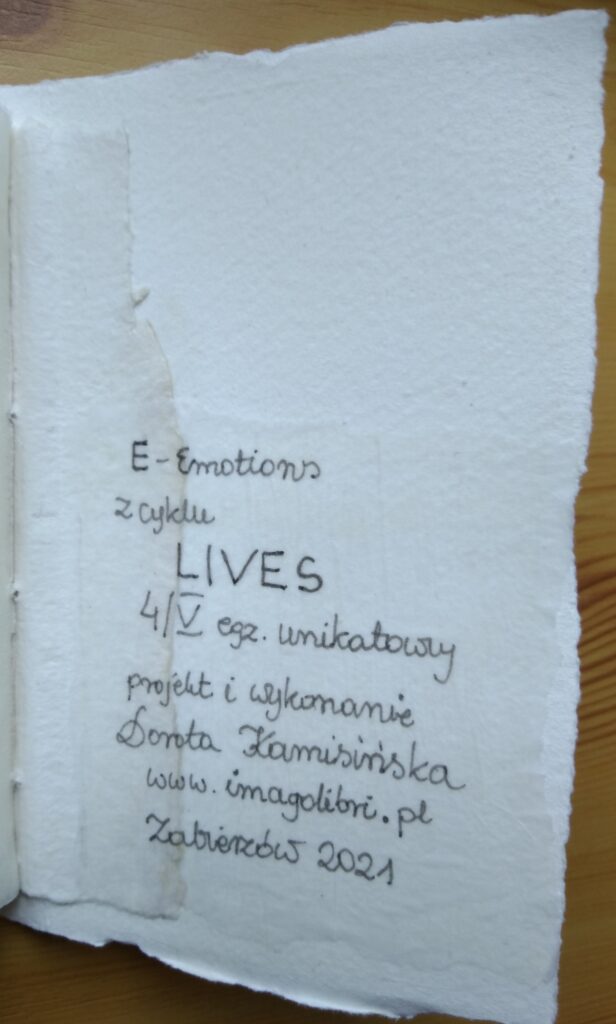 E-Emotions
z cyklu
LIVES
4/V egz. unikatowy
projekt i wykonanie
Dorota Kamisińska
www.imagolibri.pl
Zabierzów 2021